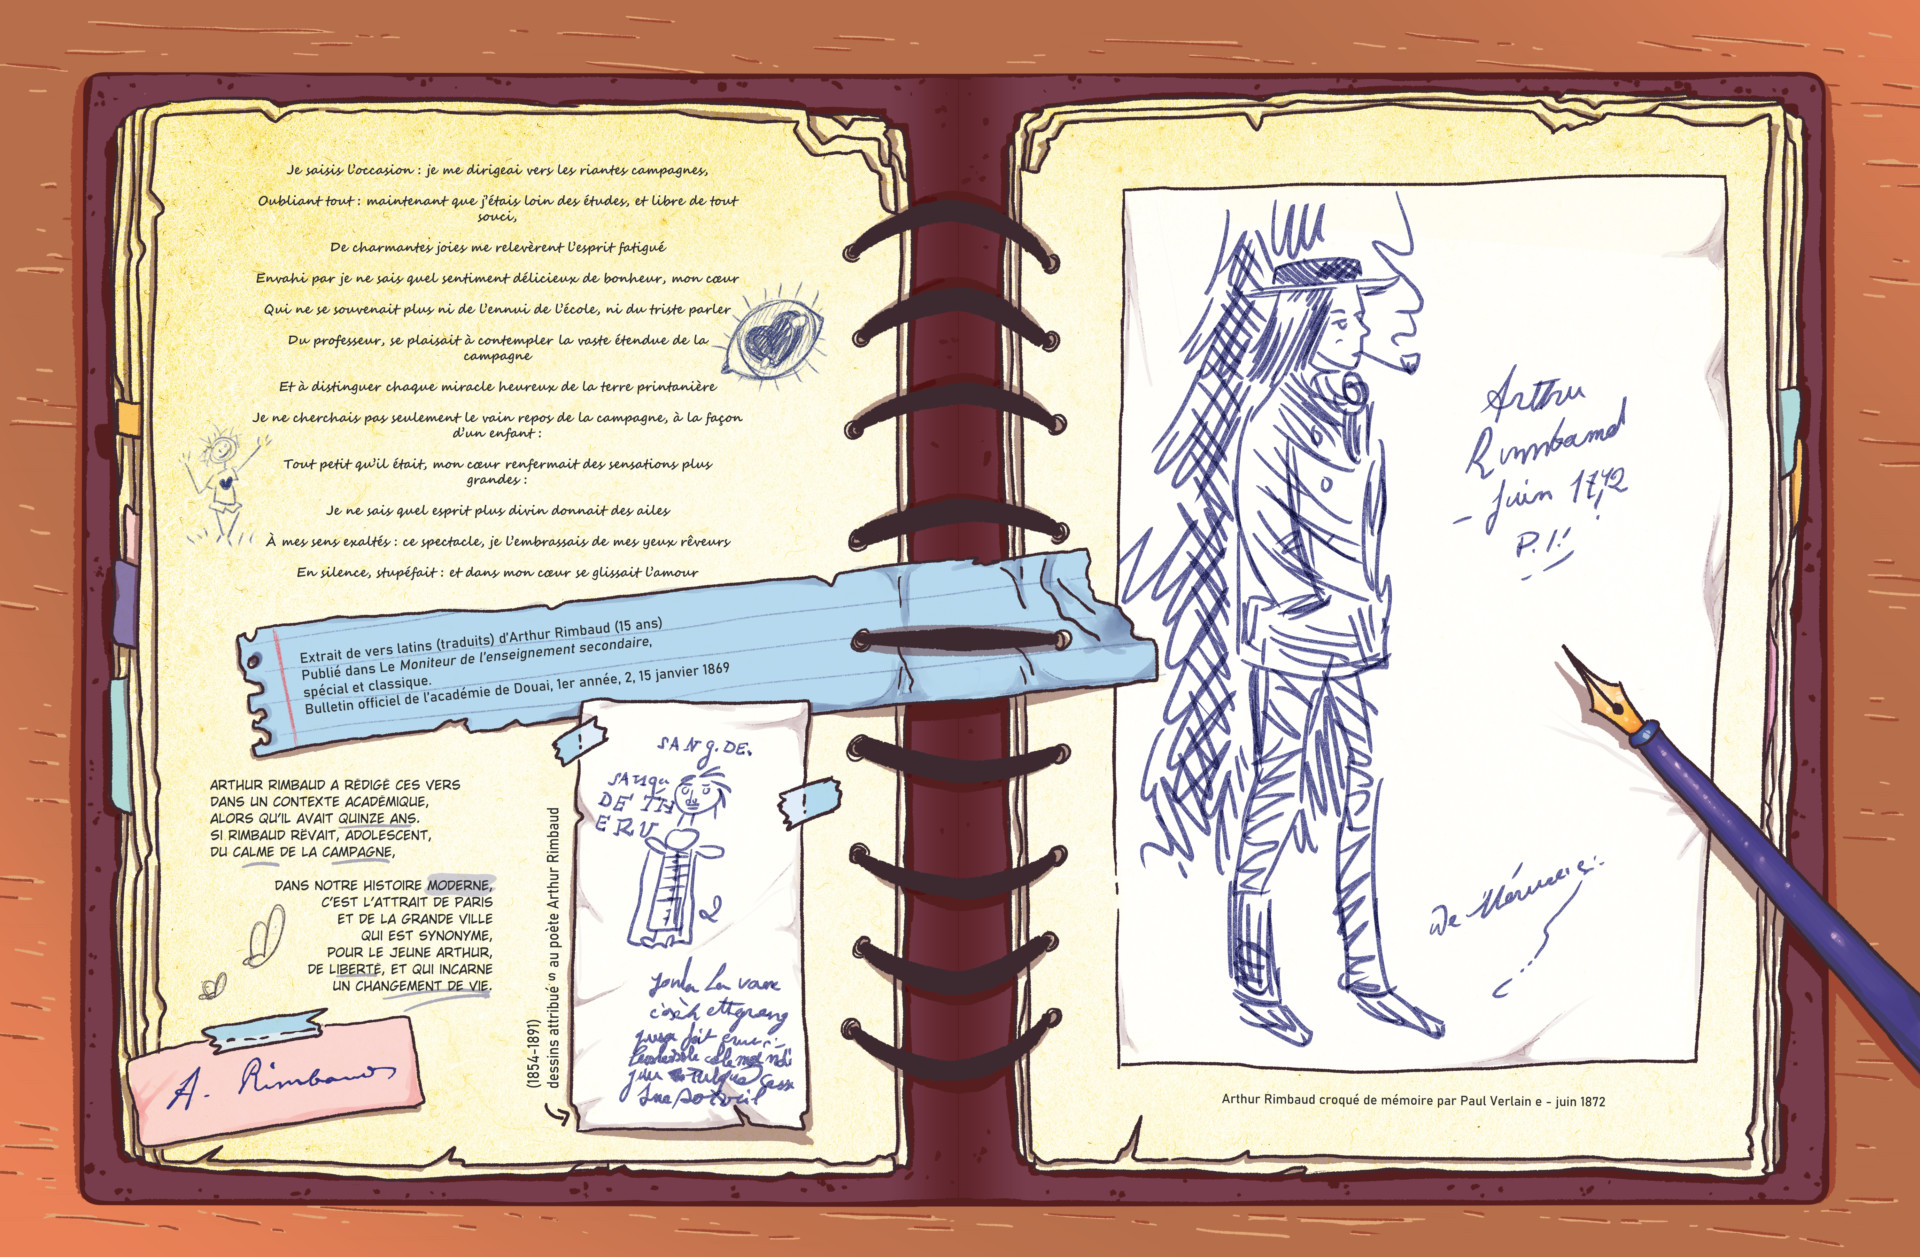 Je saisis l'occasion : je me dirigeai vers les riantes campagnes,
Oubliant tout : maintenant que j'étais loin des études, et libre de tout
souci,
De charmantes joies me relevèrent l'esprit fatigué
Envahi par je ne sais quel sentiment délicieux de bonheur, mon cœur
Qui ne se souvenait plus ni de l'ennui de l'école, ni du triste parler
Du professeur, se plaisait à contempler la vaste étendue de la
campagne
Et à distinguer chaque miracle heureux de la terre printanière
Je ne cherchais pas seulement le vain repos de la campagne, à la façon
d'un enfant :
Tout petit qu'il était, mon cœur renfermait des sensations plus
grandes :
Je ne sais quel esprit plus divin donnait des ailes
À mes sens exaltés : ce spectacle, je l'embrassais de mes yeux rêveurs
En silence, stupéfait : et dans mon cœur se glissait l'amour
Extrait de vers latins (traduits) d'Arthur Rimbaud (15 ans)
Publié dans Le Moniteur de l'enseignement secondaire,
spécial et classique.
Bulletin officiel de l'académie de Douai, 1er année, 2, 15 janvier 1869
ARTHUR RIMBAUD A RÉDIGÉ CES VERS
DANS UN CONTEXTE ACADÉMIQUE,
ALORS QU'IL AVAIT QUINZE ANS.
SI RIMBAUD RÊVAIT, ADOLESCENT,
DU CALME DE LA CAMPAGNE,
DANS NOTRE HISTOIRE MODERNE,
C'EST L'ATTRAIT DE PARIS
ET DE LA GRANDE VILLE
QUI EST SYNONYME,
POUR LE JEUNE ARTHUR,
DE LIBERTÉ, ET QUI INCARNE
UN CHANGEMENT DE VIE.
A. Rimbaud
(1854-1891)
dessins attribué s au poète Arthur Rimbaud
SANG. DE.
DE TH
ERU
2
Arthur
Rimbaud
- Juin
De
Arthur Rimbaud croqué de mémoire par Paul Verlain e - juin 1872